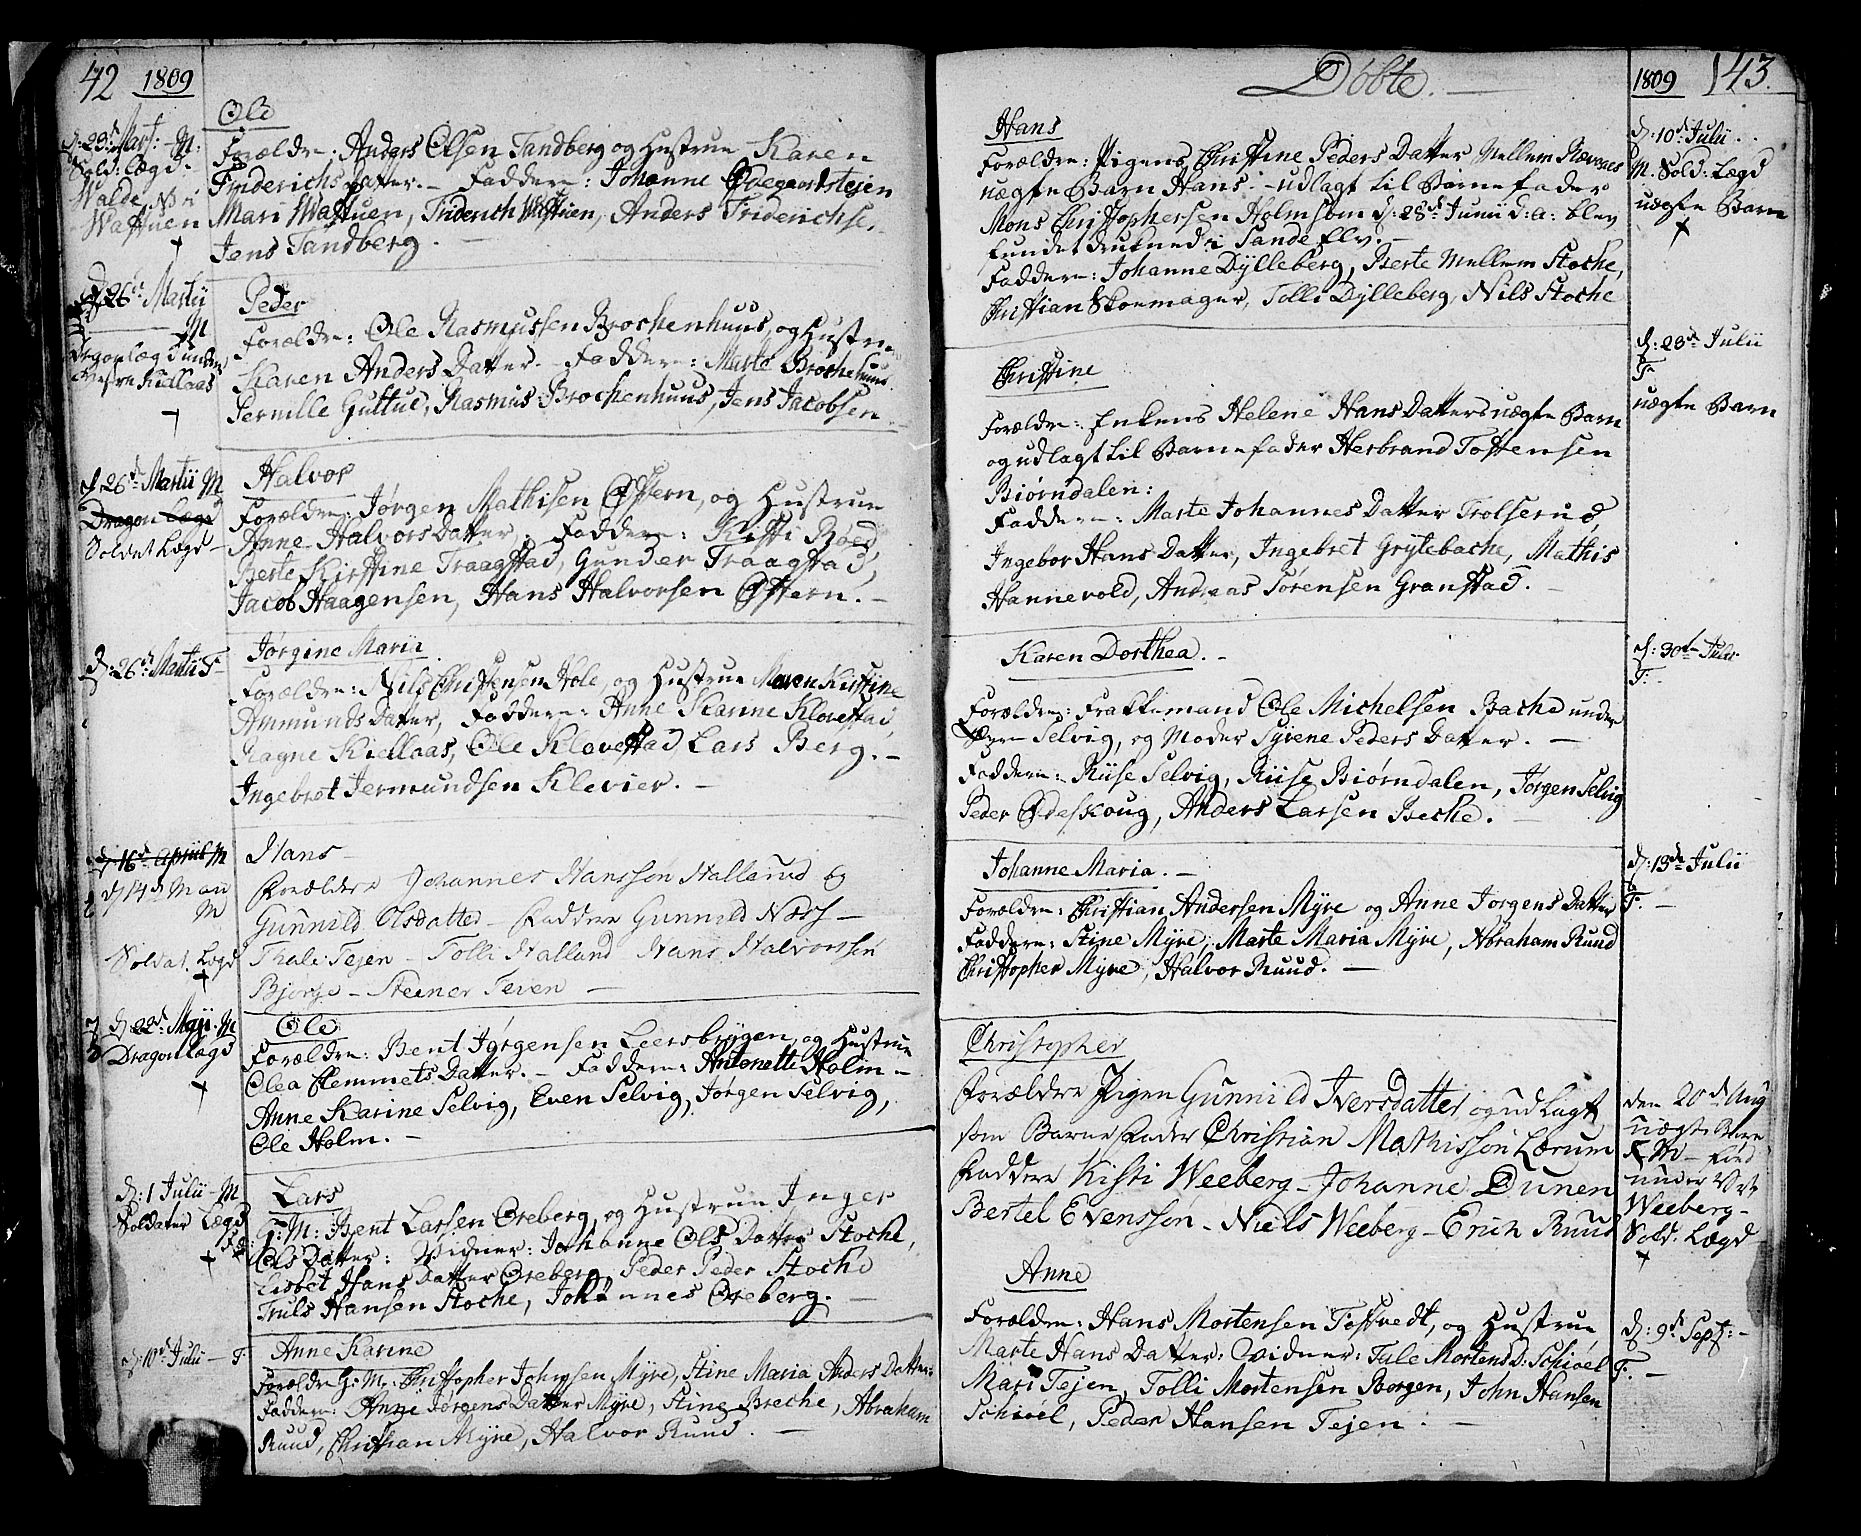 42 1809
d: 23d Mart: - M:
Sold: Lægd.
Walde, No 1
Wattuen
Ole
Forældre: Anders Olsen Sandberg og Hustrue Karen
Friderichs Datter. - Faddere: Johanne Ødegaardsteien
Mari Wattuen, Friderich Wattuen, Anders Friderichse,
Jens Sandberg. -
d 26d Martii
M
Dragonlægd under
Kiellaas
Peder
Forældre: Ole Rasmussen Brochenhuus, og Hustrue
Karen Anders Datter. - Faddere: Marte Brochehuus
Pernille Guttue, Rasmus Brochenhuus, Jens Jacobsen
d. 26d Martii M
Dragon Lægd
Soldat Lægd -
Halvor
Forældre: Jørgen Mathisen Østern, og Hustrue
Anne Halvors Datter, Faddere: Kisti Røed,
Berte Kirstine Traagstad, Gunder Traagstad,
Jacob Haagensen, Hans Halvorsen Østern. -
d: 26d Martii F
Jørgine Maria
Forældre: Nils Christensen Hole, og Hustrue Maren Kirstine
Ammunds Datter, Faddere: Anne Karine Klovestad,
Ragne Kiellaas, Ole Klovestad Lars Berg. -
Ingebret Jermundsen Klevier. -
d. 16d Aprill M
M
Soldat. Lægd
Hans
Forældre Johannes Hanssøn Hallerud og
Gunnild Olsdatter - Faddere Gunnild Næss -
Thale Tejen - Tolli Halland Hans Halvorssen
Bjørge - Steener Teien -
d: 22d Maji. M
Dragon Lægd
Ole
Forældre: Bent Jørgensen Leersbrygen, og Hustrue
Olea Clemmets Datter. - Faddere: Antonette Holm -
Anne Karine Selvig, Even Selvig, Jørgen Selvig,
Ole Holm. -
d: 1 Julii - M
Soldater Lægd
Lars
F: M: Bent Larsen Oreberg, og Hustrue Inger
Ols Datter: Vidner: Johanne Ols Datter Stoche,
Lisbet Hans Datter Oreberg, Peder Peder Stoche
Truls Hansen Stoche, Johannes Oreberg. -
d: 10d Julii - F
Anne Karine
Forældre G: M: Christopher Johnsen Myre, Stine Maria Anders Datter:
Faddere: Anne Jørgens Datter Myre, Stine Breche, Abraham
Ruud, Christian Myre, Halvor Ruud. -
Döbte. -
1809 143.
Hans
Forældre: Pigens Christine Peders Datter Mellem Revenes
uægte Barn Hans: - udlagt til Barnefader
Mons Christophersen Holmsbøe d: 28d Junii d: a: blev
fundet drukned i Sande Elv. -
Faddere: Johanne Dylleberg, Berte Mellem Stoche,
Christian Skoemager, Tolli Dylleberg, Nils Stoche
d: 10d Julii
M. Sold: Lægd
uægte Barn
Christine
Forældre: Enkens Helene Hans Datters uægte Barn
og udlagt til Barnefader Herbrand Tostensen
Biørndalen:
Faddere: Marte Johannes Datter Trolserud,
Ingebor Hans Datter, Ingebret Grytebache, Mathis
Hannevold, Andreas Sørensen Granstad. -
d: 23d Julii
F
uægte Barn
Karen Dorthea. -
Forældre: Frakkemand Ole Michelsen Bache under
Selvig, og Moder Syrene Peders Datter. -
Faddere: Riise Selvig, Riise Biørndalen, Jørgen Selvig
Peder Ødeskoug, Anders Larsen Beche. -
d: 30te Julii
F. -
Johanne Maria. -
Forældre: Christian Andersen Myre og Anne Jørgens Datter
Faddere: Stine Myre, Marte Maria Myre, Abraham Ruud
Christopher Myre, Halvor Ruud. -
d: 13d Julii
F. -
Christopher
Forældre Pigen Gunnild Iversdatter og udlagt
som Barnefader Christian Mathissøn Lærum
Faddere Kisti Weeberg - Johanne Dunen
Bertel Evenssøn - Niels Weeberg - Erich Ruud
den 20d Aug
uægte Barn
under
Weeberg -
Sold. Lægd
Anne
Forældre: Hans Mortensen Toftvedt, og Hustrue,
Marte Hans Datter: Vidner: Tale Mortens D: Schiøel
Mari Tejen, Tolli Mortensen Borgen, John Hansen
Schiøel, Peder Hansen Tejen. -
d: 9d Sept: -
F. -